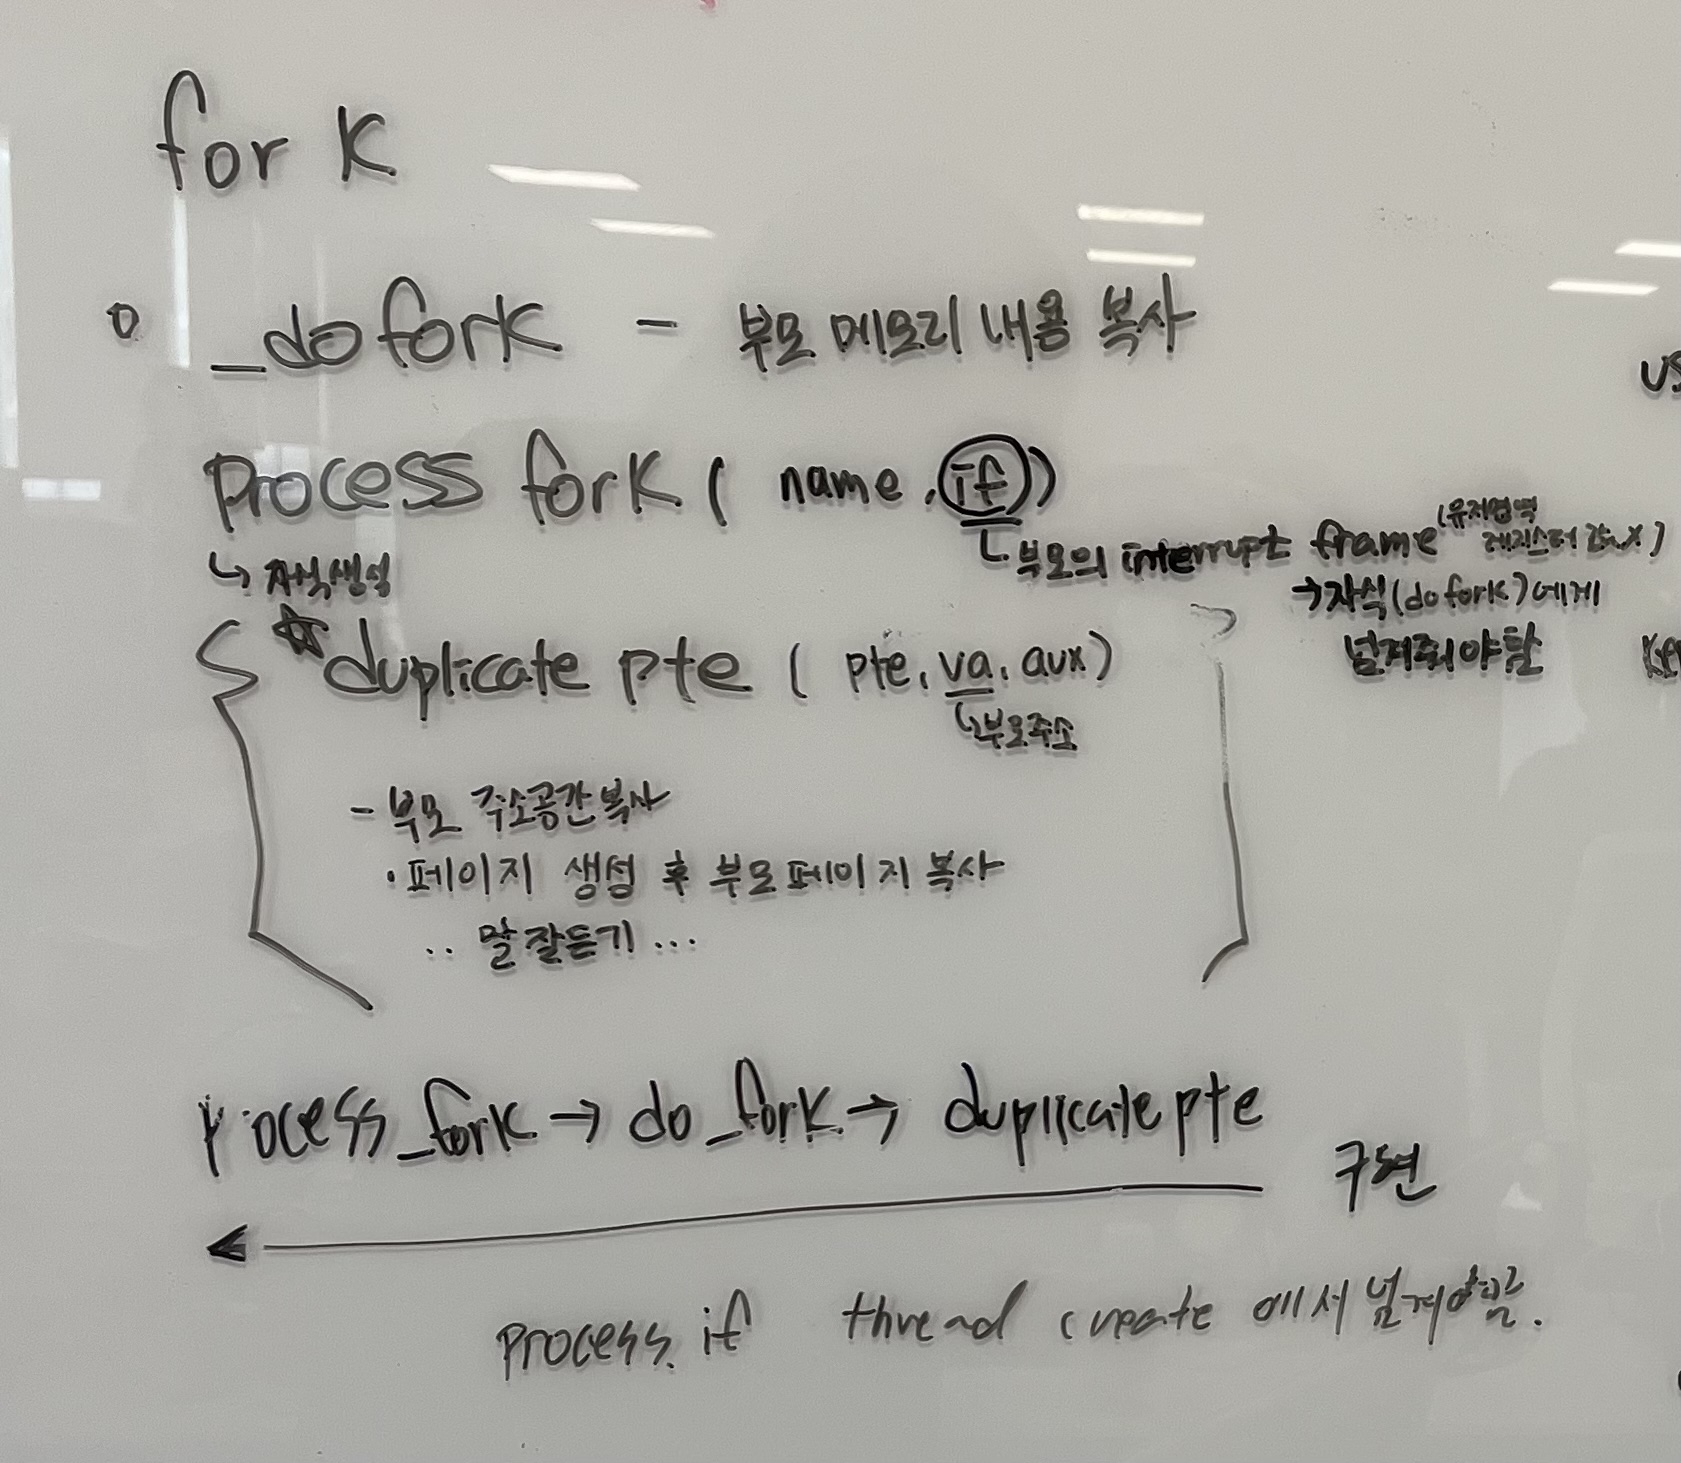 fork
o _dofork - 부모 메모리 내용 복사
process fork ( name, if )
↳ 자식생성
↳ 부모의 interrupt frame (유저영역 레지스터
→ 자식(do fork)에게
넘겨줘야함
☆ duplicate pte ( pte, va, aux )
↳ 부모주소
- 부모 주소공간 복사
· 페이지 생성 후 부모페이지 복사
.. 말잘듣기 ...
Process_fork → do_fork → duplicate pte
구현
process, if thread create 에서 넘겨야함.